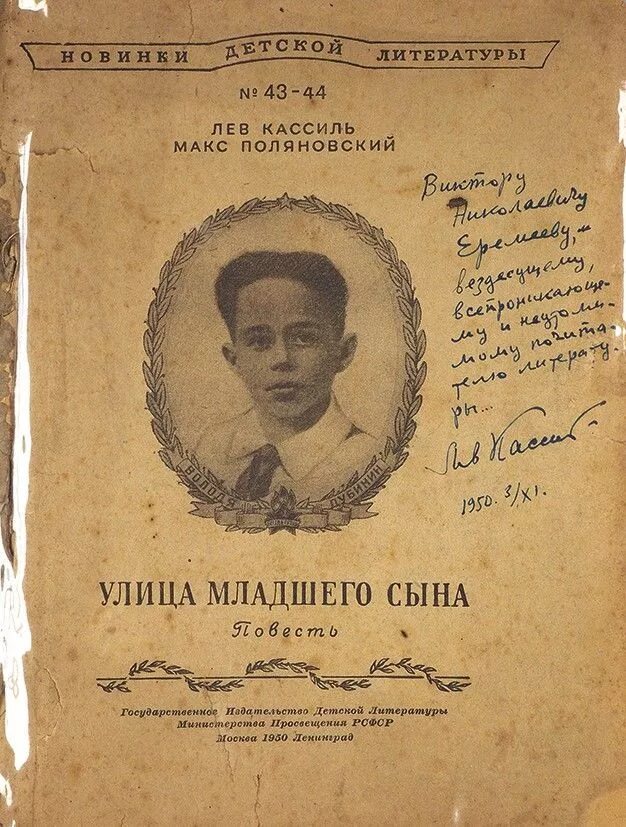 НОВИНКИ ДЕТСКОЙ ЛИТЕРАТУРЫ
№ 43-44
ЛЕВ КАССИЛЬ
МАКС ПОЛЯНОВСКИЙ
Виктору
Николаевичу
Еремееву,
вездесущему,
всепроникающе-
му и неутоми-
мому почита-
телю литерату-
ры...
Лев Кассиль
1950. 3/XI.
ВОЛОДЯ ДУБИНИН
УЛИЦА МЛАДШЕГО СЫНА
Повесть
Государственное Издательство Детской Литературы
Министерства Просвещения РСФСР
Москва 1950 Ленинград